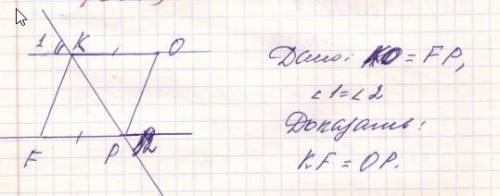 1 K O
Дано: KO = FP,
∠1=∠2
Доказать:
F P 2
KF = OP.